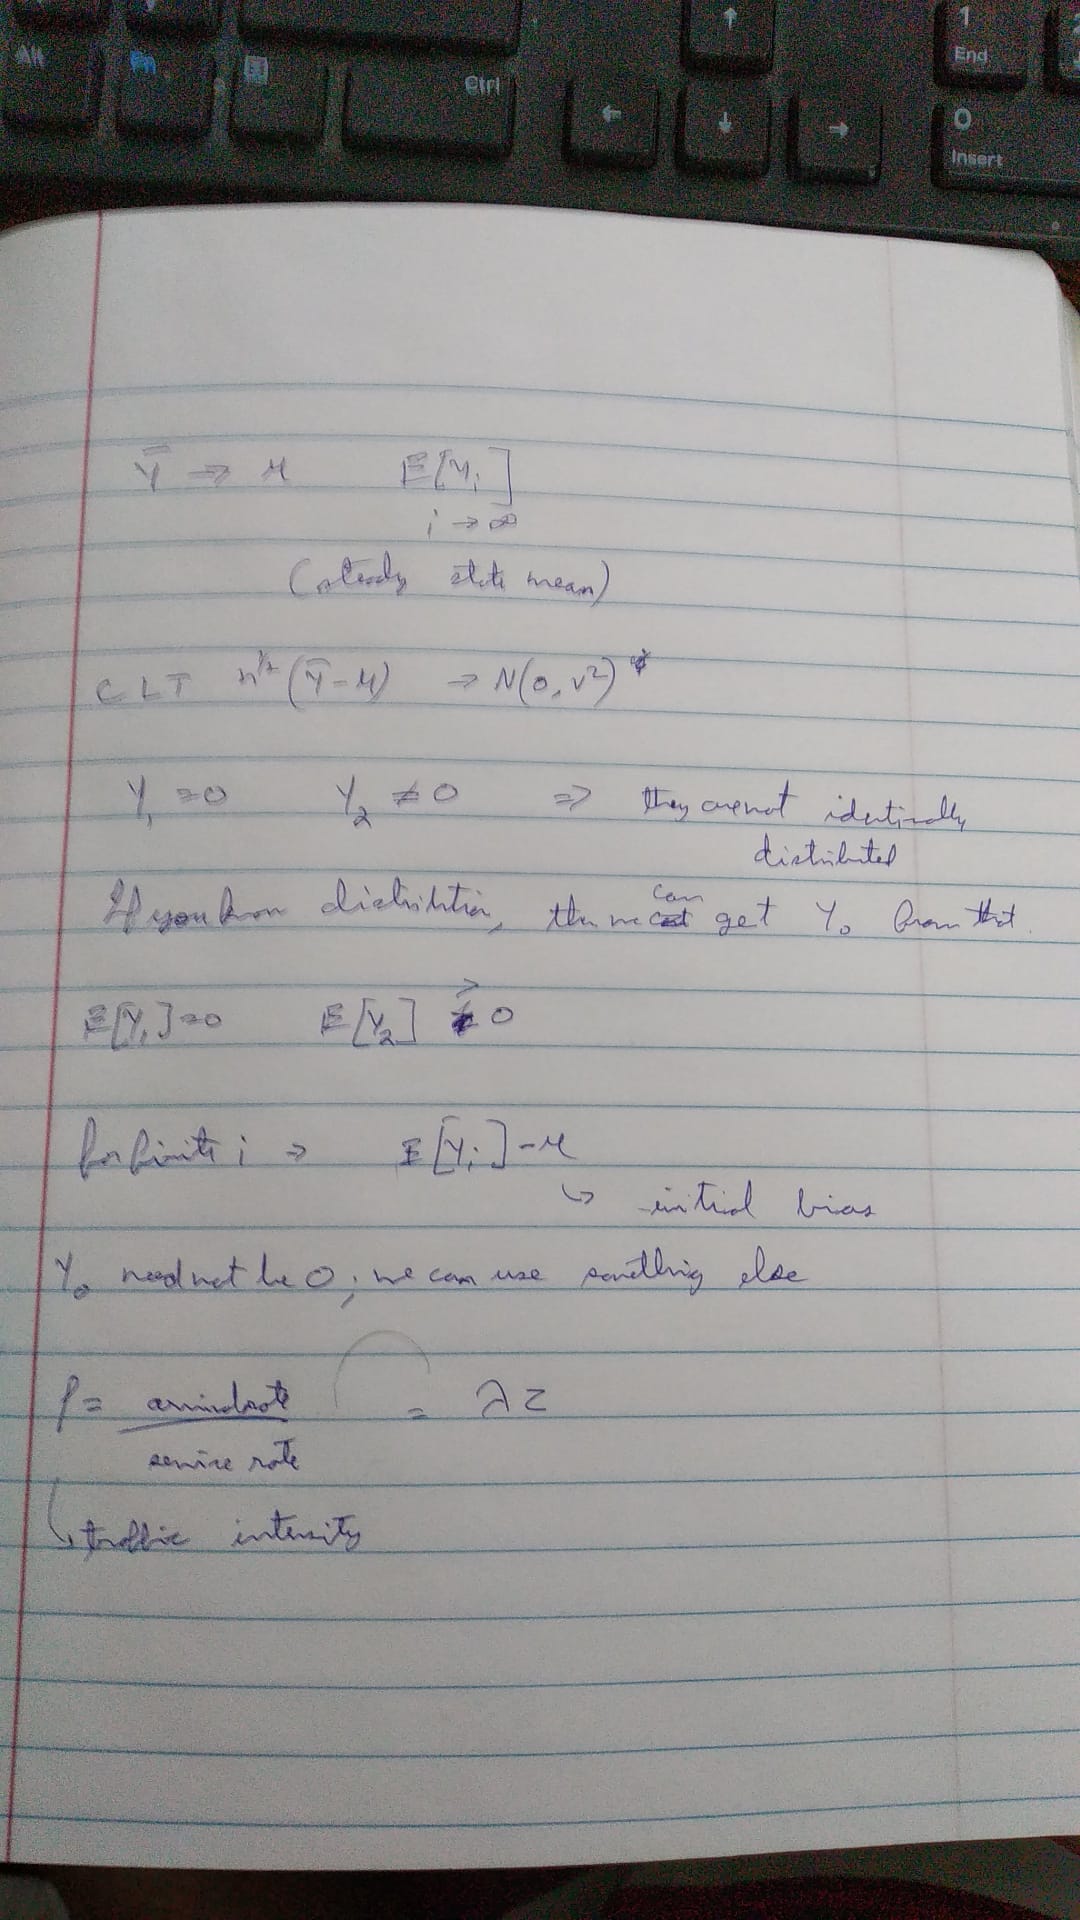 Alt Fn Ctrl ← ↑ ↓ → 1 End 0 Insert
Ȳ ⇒ μ E[Y_i]
i → ∞
(steady state mean)
CLT n^{1/2} (Ȳ - μ) → N(0, v²)
Y_1 = 0 Y_2 ≠ 0 ⇒ they are not identically
distributed
can
If you know distribution, then we get Y_0 from that.
E[Y_1] = 0 E[Y_2] > 0
for finite i ⇒ E[Y_i] - μ
↳ initial bias
Y_0 need not be 0; we can use something else
ρ = arrival rate = λ τ
service rate
↳ traffic intensity